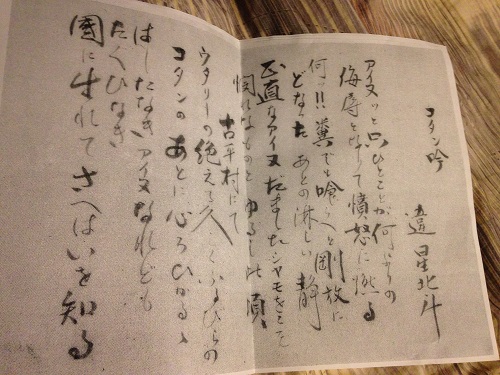 コタン吟
違星北斗
アイヌッと只ひとことが何よりの
侮辱となりて憤怒に燃る
何ッ!!糞でも喰へと剛放に
どなったあとの淋しい静
正直なアイヌだましたシャモをこそ
憫れなものとゆるす此頃
古平村にて
ウタリーの絶えて久しくふるびらの
コタンのあとに心ひかるゝ
はしたなきアイヌなれども
たぐひなき
國に生れてさいはいを知る